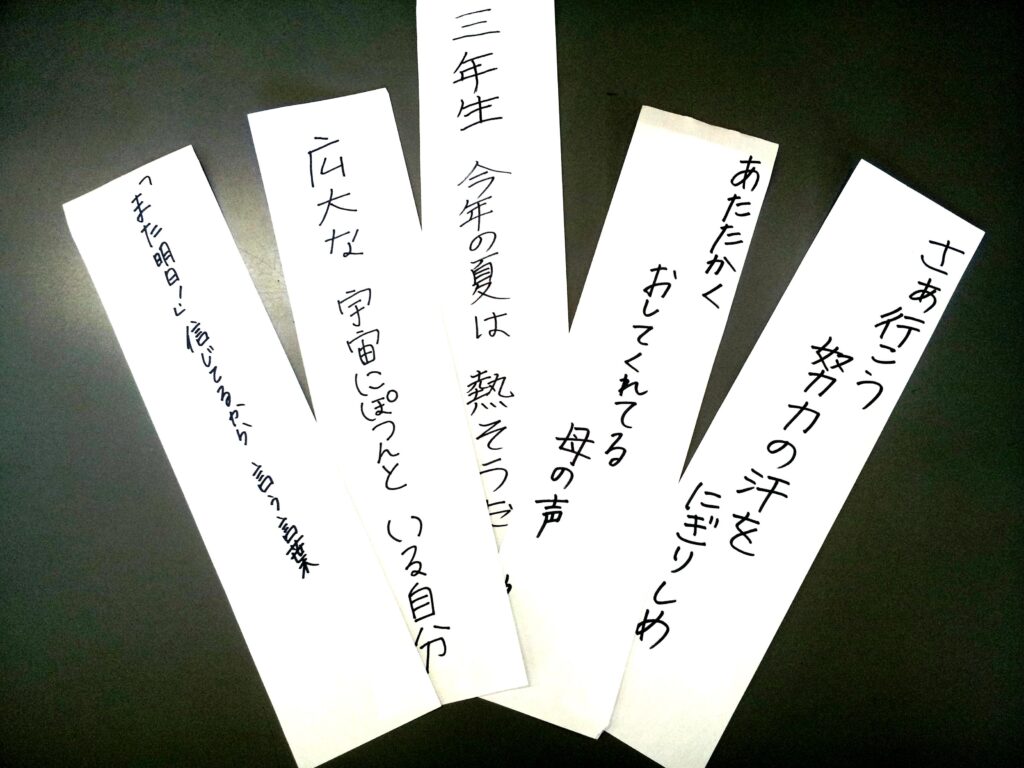 さぁ行こう
努力の汗を
にぎりしめ
あたたかく
おしてくれてる
母の声
三年生 今年の夏は 熱そうだ
広大な 宇宙にぽつんと いる自分
「また明日!」 信じてるから 言う言葉